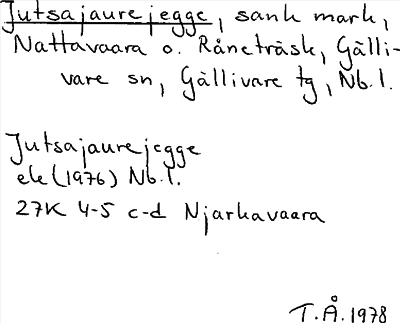 Jutsajaurejegge, sank mark,
Nattavaara o. Råneträsk, Gälli-
vare sn, Gällivare tg, Nb. l.
Jutsajaurejegge
ek (1976) Nb. l.
27K 4-5 c-d Njarkavaara
T.Å. 1978